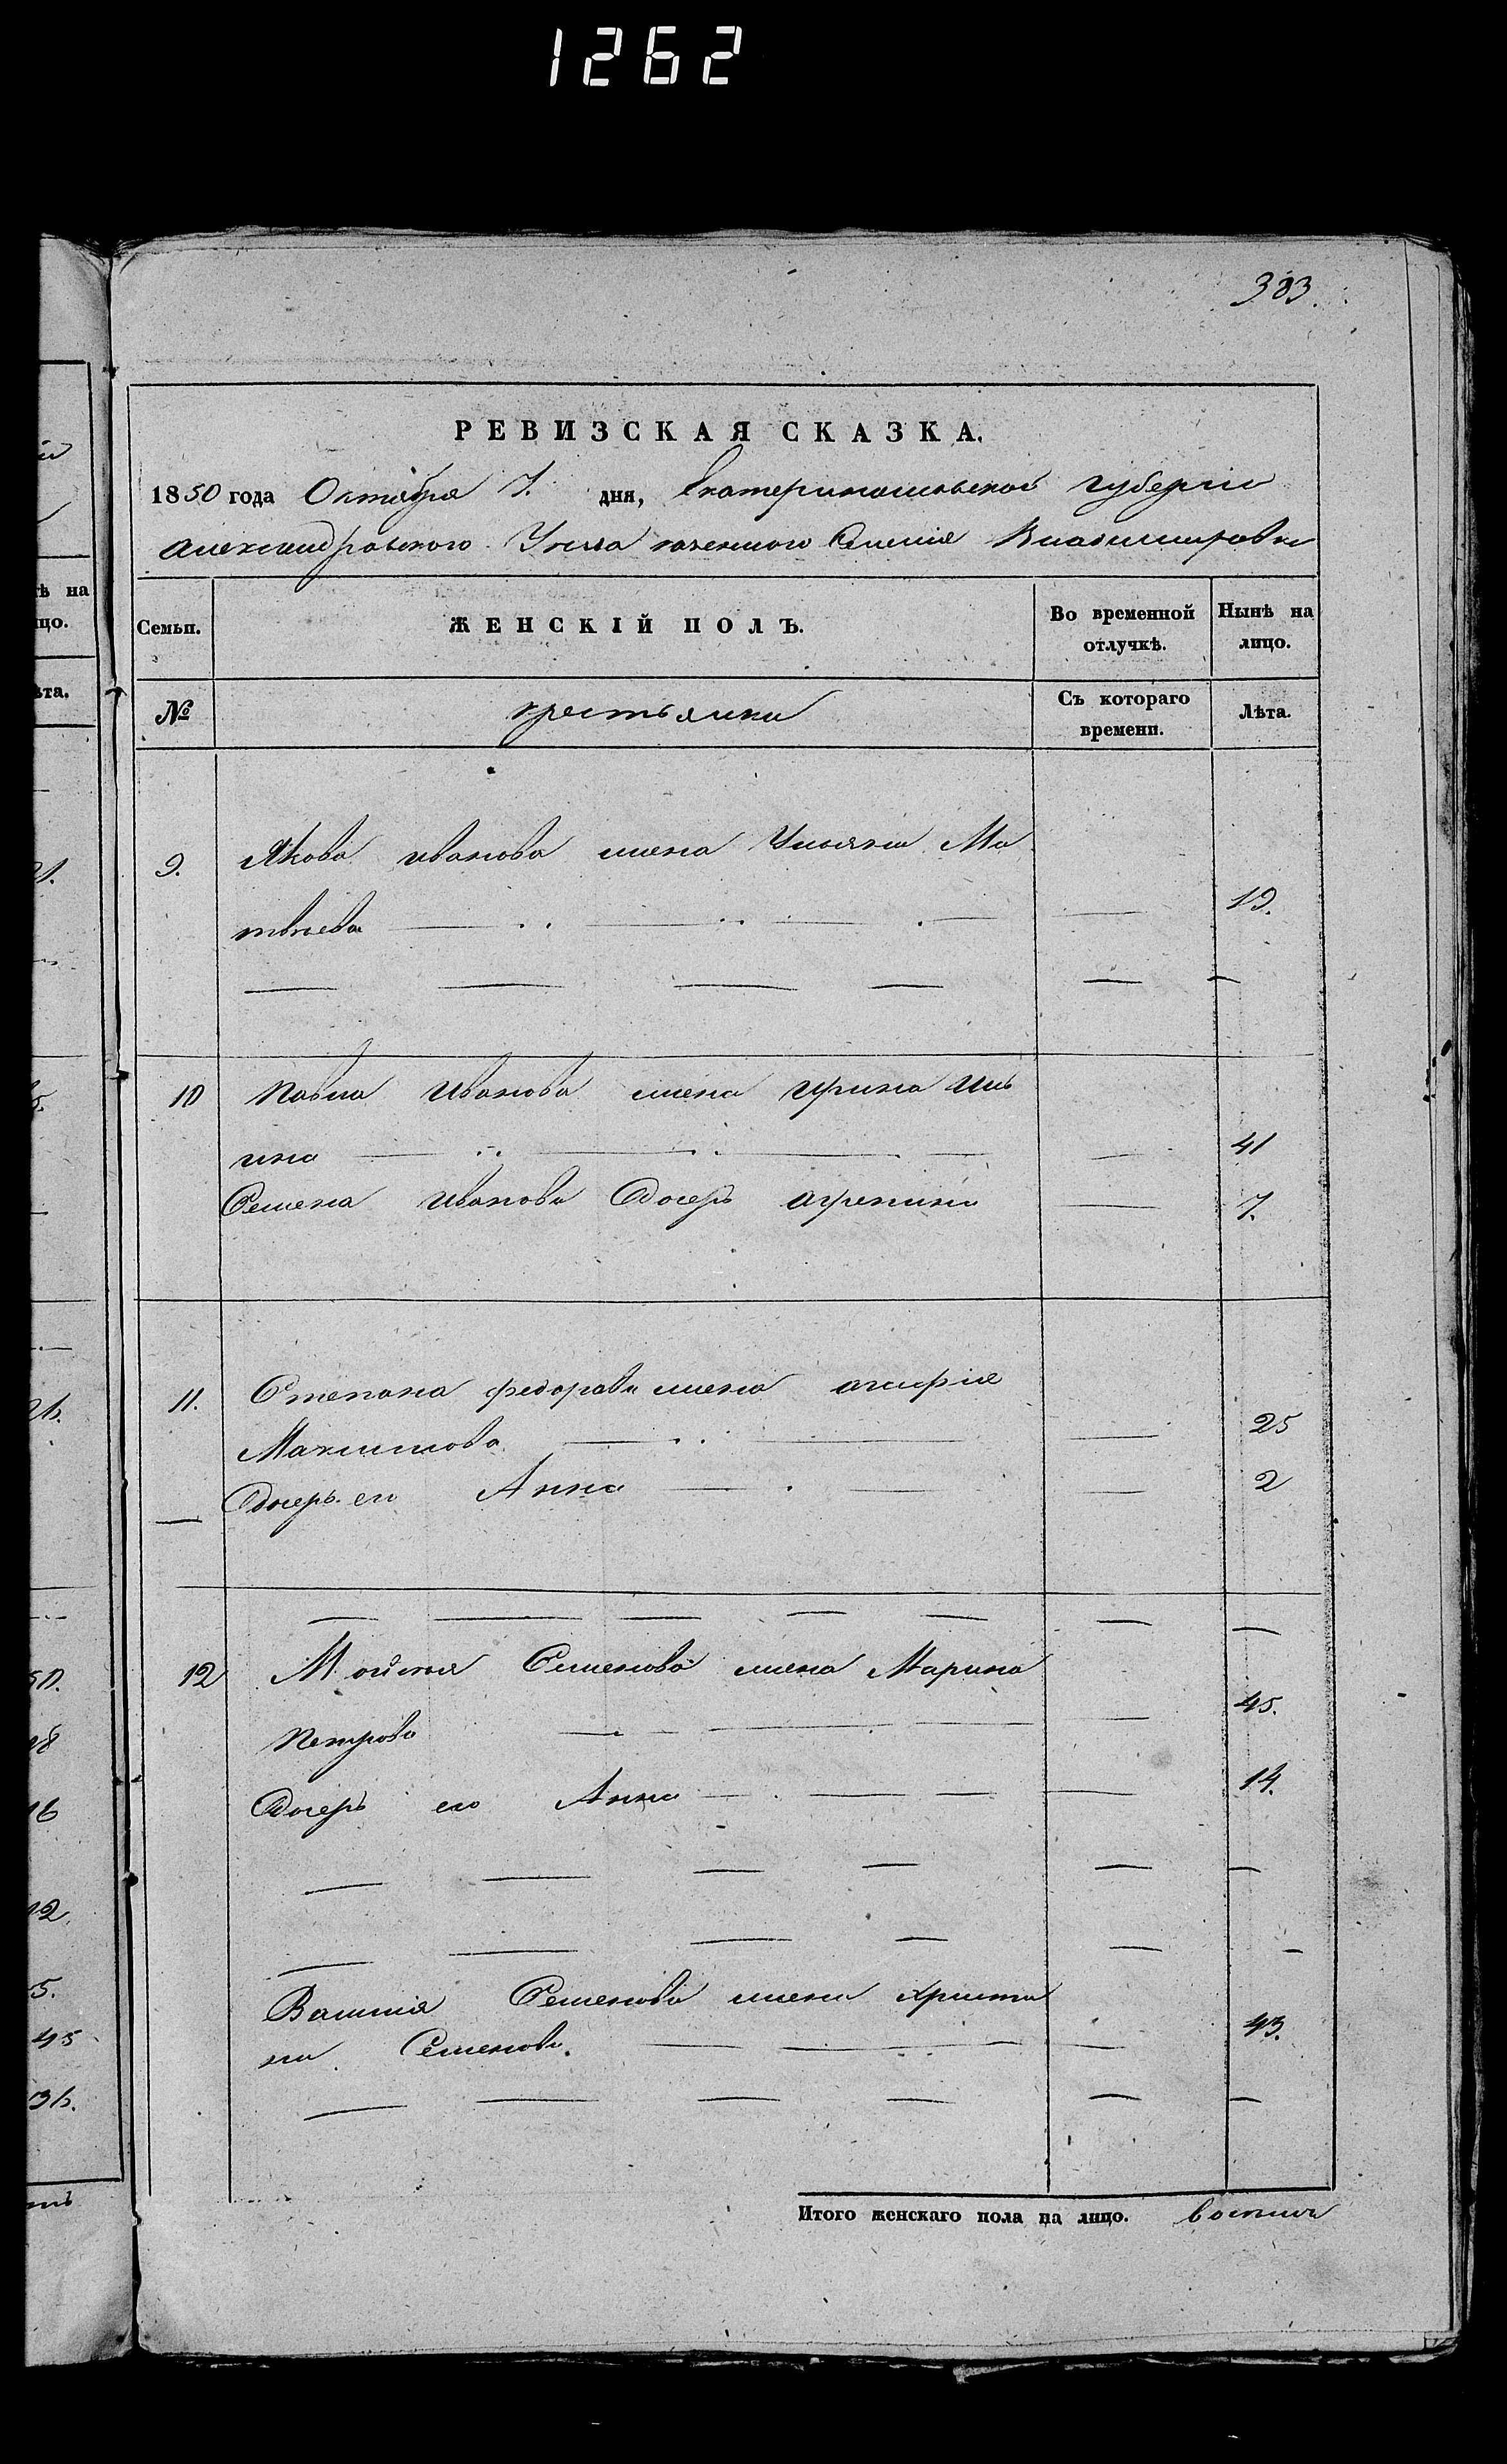 1262
383.
РЕВИЗСКАЯ СКАЗКА.
1850 года Октября 7. дня, Екатеринославской губернiи
Александровского Уезда казенного Селенiя Владимировки
Семьи. ЖЕНСКIЙ ПОЛЪ. Во временной отлучкѣ. Нынѣ на лицо.
№ крестьянки Съ котораго времени. Лѣта.
9. Якова иванова жена Ульяна Ма
твѣева 19.
10 Павла Иванова жена ирина Иль
ина 41
Семена Иванова Дочерь агрепина 7.
11. Степана федорава жена агафiя
Максимова 25
Дочерь его Анна 2
12 Мойсея Семенова жена Марина
Петрова 45.
Дочерь его Анна 14.
Василiя Семенова жена христи
на Семенова. 43.
Итого женскаго пола на лицо. восемь
ѣ на
цо.
ѣта.
21.
26.
50.
16
12
5.
45
36.